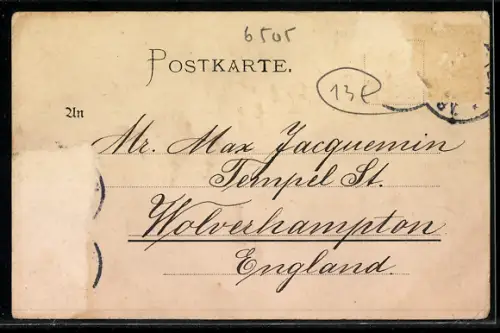 6505
POSTKARTE.
13€
An
Mr. Max Jacquemin
Tempel St.
Wolverhampton
England.